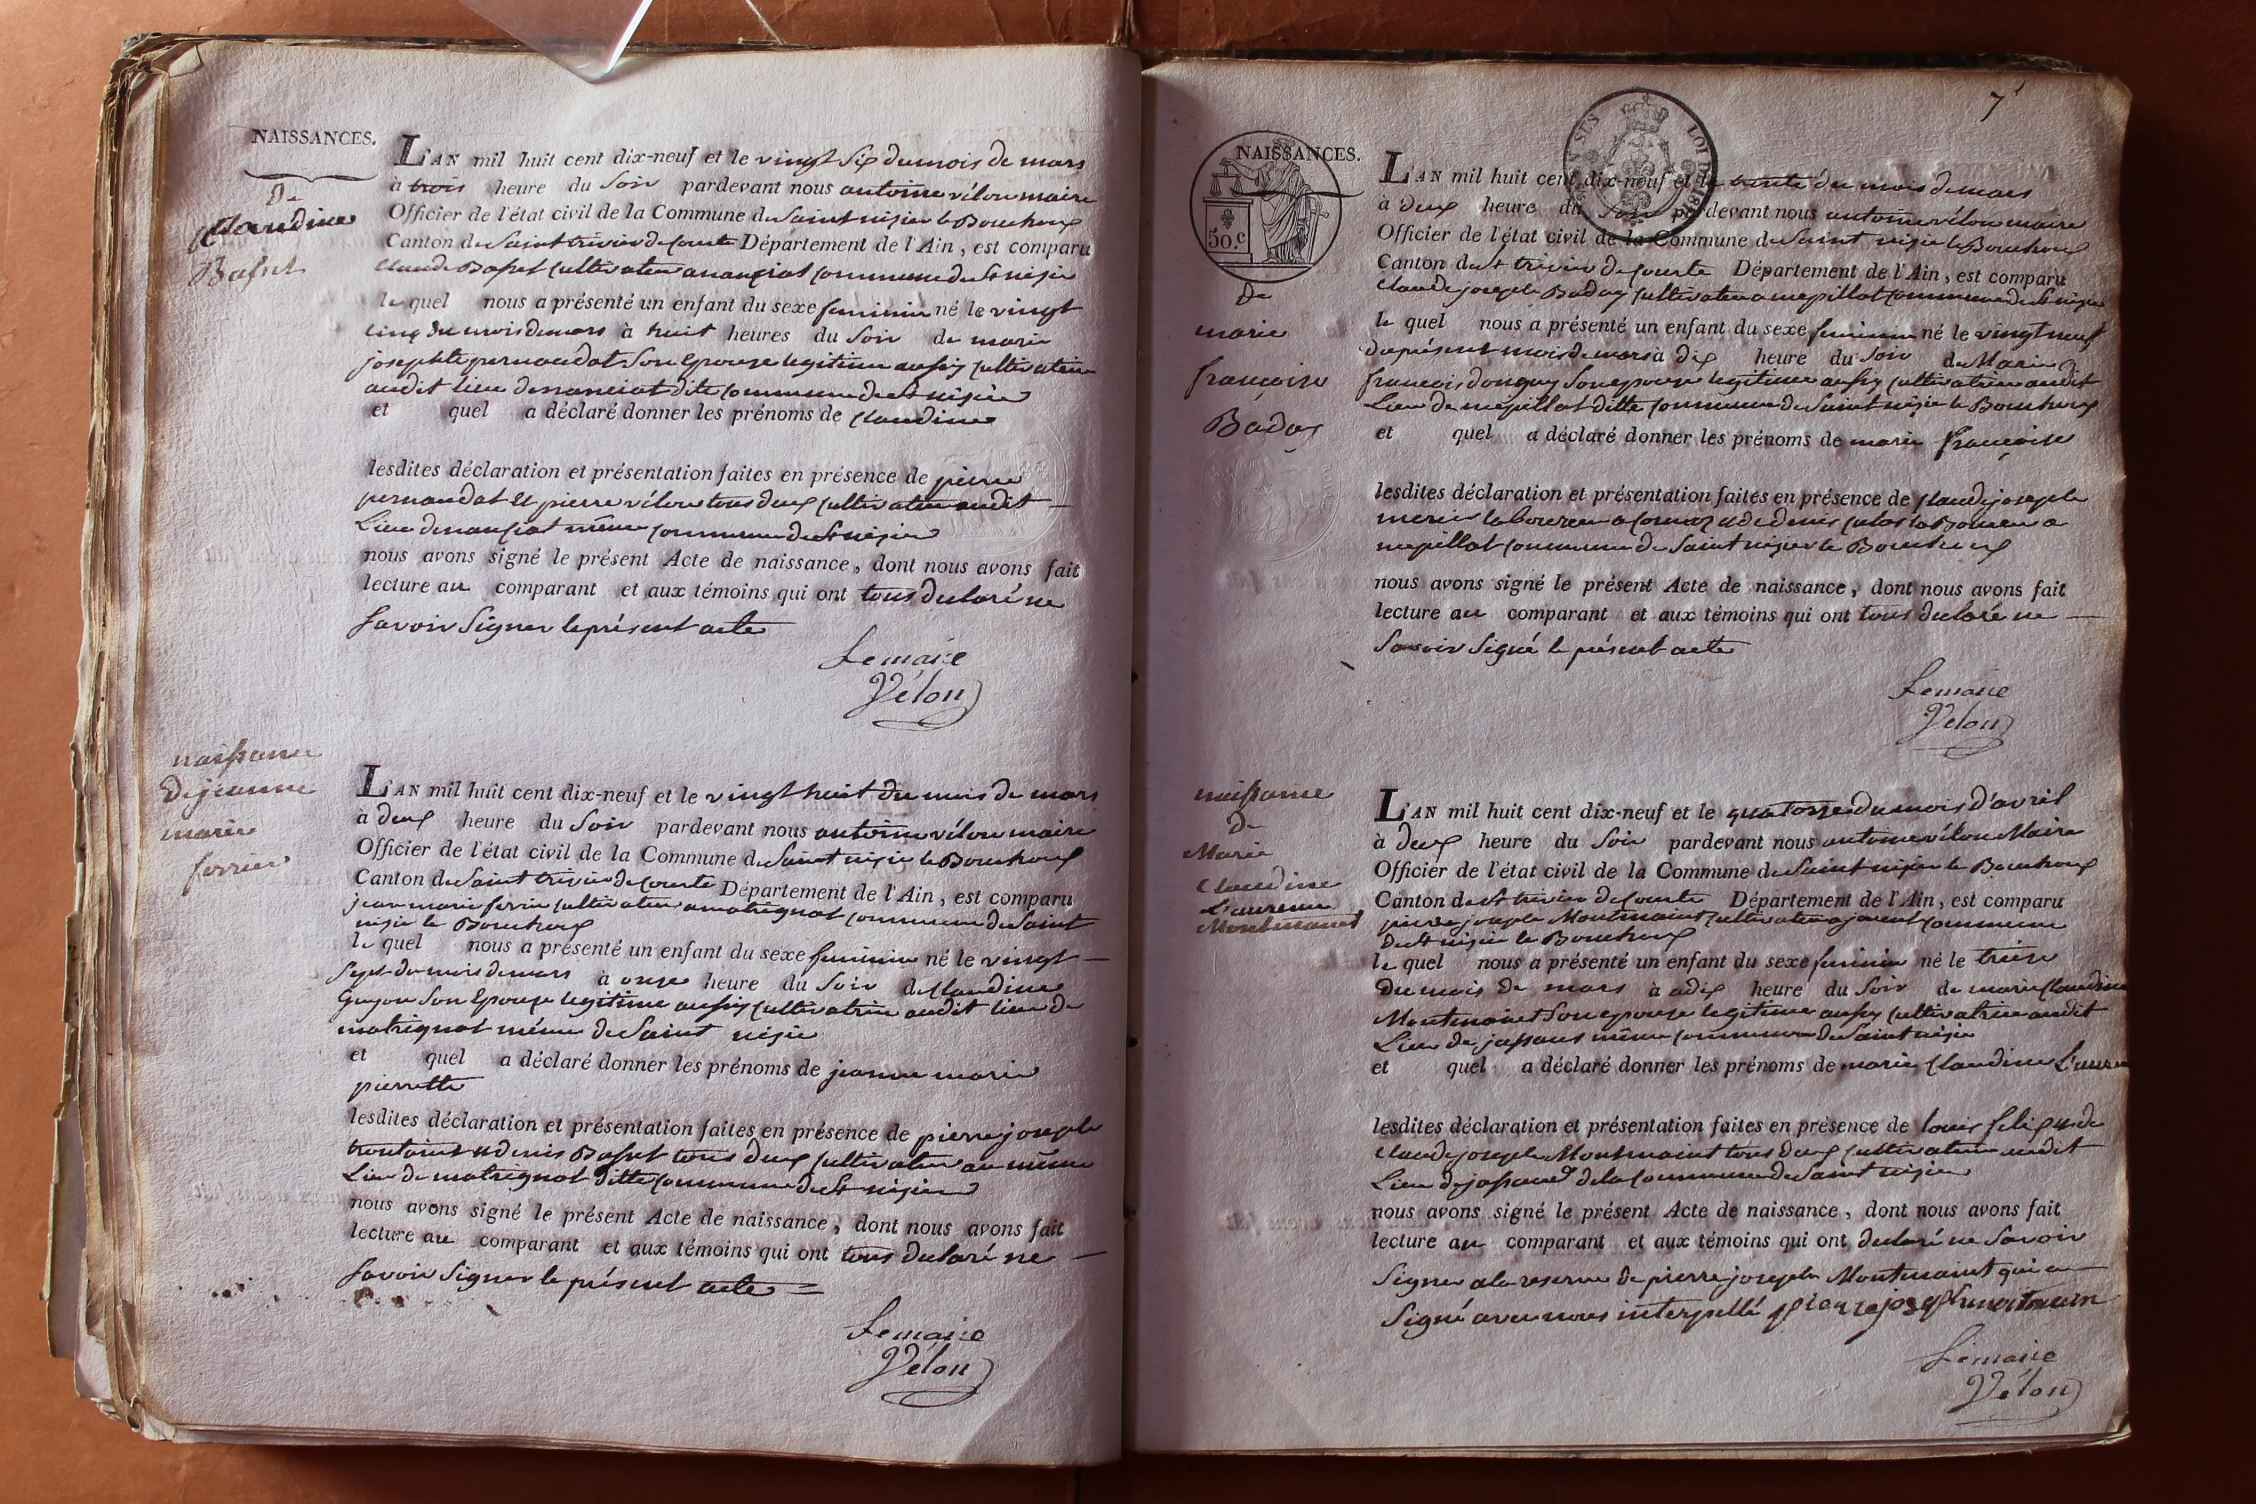 NAISSANCES.
De
Claudine
Basset
L'AN mil huit cent dix-neuf et le vingt six du mois de mars
à trois heure du soir pardevant nous antoine vélon maire
Officier de l'état civil de la Commune de Saint nisier le Bouchoux
Canton de Saint trivier de Courte Département de l'Ain, est comparu
Claude Basset Cultivateur a nanciat Commune de St nisier
le quel nous a présenté un enfant du sexe feminin né le vingt
cinq du mois de mars à huit heures du soir de marie
josephte pernaudat son Epouze legitime aussy Cultivatrice
audit lieu de nanciat dite Commune de St nisier
et quel a déclaré donner les prénoms de Claudine
lesdites déclaration et présentation faites en présence de pierre
pernaudat et pierre vélon tous deux Cultivateur audit
Lieu de nanciat même Commune de St nisier
nous avons signé le présent Acte de naissance, dont nous avons fait
lecture au comparant et aux témoins qui ont tous declaré ne
Savoir Signer le présent acte
Lemaire
Vélon
naissance
De jeanne
marie
ferrier
L'AN mil huit cent dix-neuf et le vingt huit du mois de mars
à deux heure du Soir pardevant nous antoine vélon maire
Officier de l'état civil de la Commune de Saint nisier le Bouchoux
Canton de Saint trivier de Courte Département de l'Ain, est comparu
jean marie ferrier Cultivateur a matrignat Commune de Saint
nisier le Bouchoux
le quel nous a présenté un enfant du sexe feminin né le vingt
Sept du mois de mars à onze heure du Soir de Claudine
Guyon Son Epouze legitime aussy Cultivatrice audit lieu de
matrignat même de Saint nisier
et quel a déclaré donner les prénoms de jeanne marie
pierrette
lesdites déclaration et présentation faites en présence de pierre joseph
et denis Basset tous deux Cultivateur au même
Lieu de matrignat ditte Commune de St nisier
nous avons signé le présent Acte de naissance, dont nous avons fait
lecture au comparant et aux témoins qui ont tous declaré ne
Savoir Signer le présent acte
Lemaire
Vélon
7
LOI DE 181
NAISSANCES.
50.c
De
marie
françoise
Baday
L'AN mil huit cent dix-neuf et le trente du mois de mars
à deux heure du Soir pardevant nous antoine vélon maire
Officier de l'état civil de la Commune de Saint nisier le Bouchoux
Canton de St trivier de Courte Département de l'Ain, est comparu
Claude joseph Baday Cultivateur a mepillat Commune de St nisier
le quel nous a présenté un enfant du sexe feminin né le vingt neuf
du présent mois de mars à dix heure du Soir de Marie
francois donguy Son epouze legitime aussy Cultivatrice audit
Lieu de mepillat ditte Commune de Saint nisier le Bouchoux
et quel a déclaré donner les prénoms de marie françoise
lesdites déclaration et présentation faites en présence de Claude joseph
laboureur a
mepillat Commune de Saint nisier le Bouchoux
nous avons signé le présent Acte de naissance, dont nous avons fait
lecture au comparant et aux témoins qui ont tous declaré ne
Savoir Signé le présent acte
Lemaire
Velon
naissance
De
Marie
Claudine
L'aurence
Montmaint
L'AN mil huit cent dix-neuf et le quatorze du mois d'avril
à deux heure du Soir pardevant nous antoine vélon Maire
Officier de l'état civil de la Commune de Saint nisier le Bouchoux
Canton de St trivier de Courte Département de l'Ain, est comparu
pierre joseph Montmaint Cultivateur a Commune
de St nisier le Bouchoux
le quel nous a présenté un enfant du sexe feminin né le treize
Du mois de mars à a dix heure du Soir de marie Claudine
Montmaint Son epouze legitime aussy Cultivatrice audit
Lieu de jassans même Commune de Saint nisier
et quel a déclaré donner les prénoms de marie Claudine L'auren
lesdites déclaration et présentation faites en présence de louis felix et de
Claude joseph Montmaint tous deux Cultivateur audit
Lieu de de la Commune de Saint nisier
nous avons signé le présent Acte de naissance, dont nous avons fait
lecture au comparant et aux témoins qui ont declaré ne Savoir
Signer a la reserve de pierre joseph Montmaint qui a
Signé avec nous interpellé pierre joseph montmain
Lemaire
Vélon